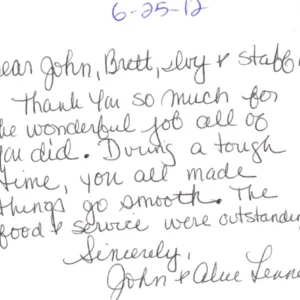 6-25-12
ear John, Brett, & staff
Thank You so much for
he wonderful job all of
you did. During a tough
time, you all made
things go smooth. The
food & service were outstanding
Sincerely,
John &